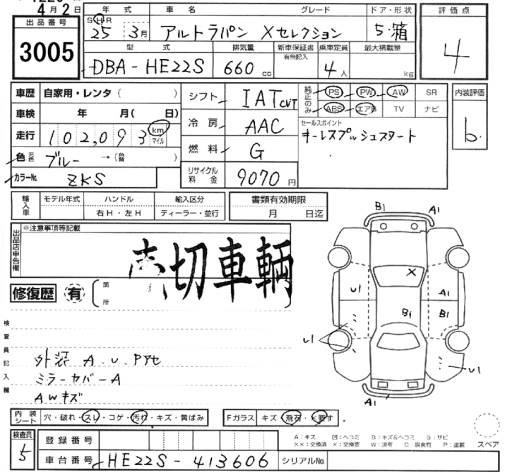 4月2日
出品番号
3005
年式 車名 グレード ドア・形状
SHR 25 3月 アルトラパン Xセレクション 5・箱
型式 排気量 新車保証書 有無記入 乗車定員 最大積載量
DBA-HE22S 660 cc 4人 kg
評価点
4
車歴 自家用・レンタ( )
車検 年 月( 日)
走行 102,093 km マイル
色 元色 ブルー →( 替)
カラーNo ZKS
シフト IAT CVT
冷房 AAC
燃料 G
リサイクル料金 9070円
純正のみ PS PW AW SR
ABS エアB TV ナビ
内装評価
b
セールスポイント
キーレスプッシュスタート
輸入車 モデル年式 ハンドル 右H・左H 輸入区分 ディーラー・並行
書類有効期限
月 日迄
出品店申告欄
※注意事項等記載
売切車輌
修復歴 有 箇所
検査員記入欄
外装 A.U.Pアセ
ミラーカバーA
AWキズ
B1 A1
X
U1 A1
B1 B1
U1 U1
A1
内装シート 穴・破れ・スレ・コゲ・汚れ・キズ・黄ばみ
Fガラス キズ・飛石・
A:キズ 凹:ヘコミ B:キズ&ヘコミ G:サビ
XX:交換済 X:交換要 W:波有 C:腐食有 P:塗離
スペア
検査員
5
登録番号
車台番号 HE22S-413606 シリアルNo